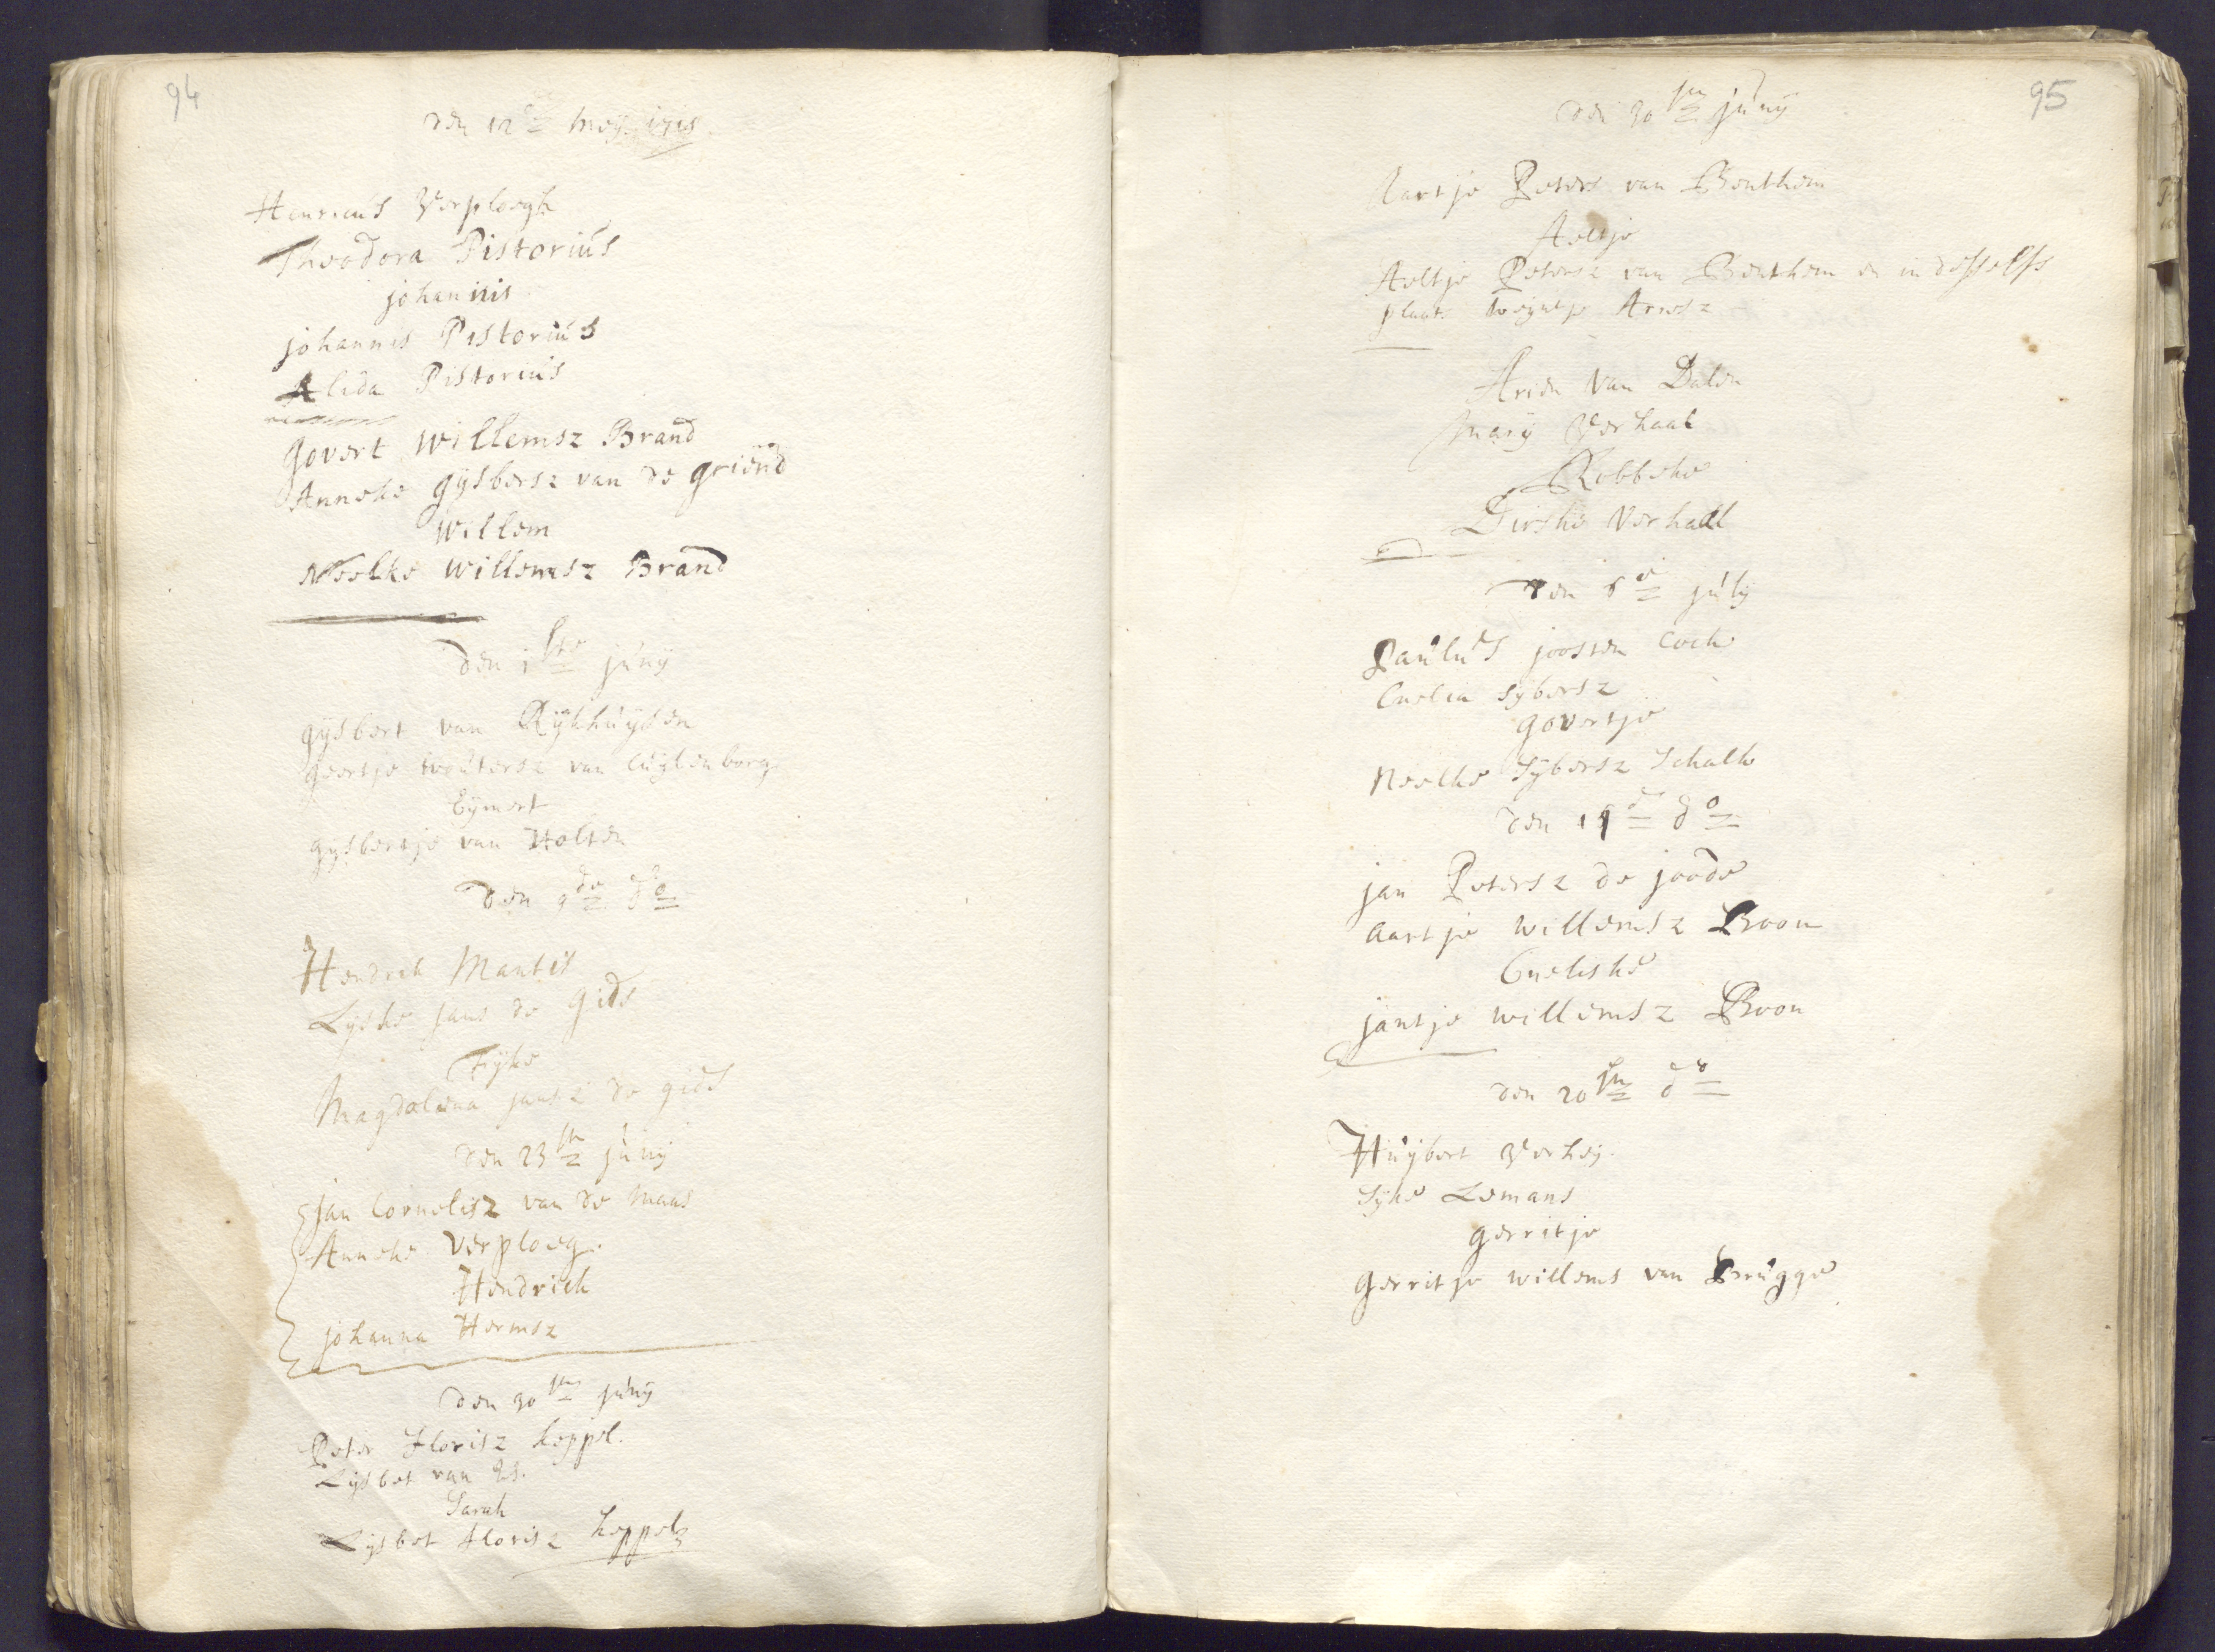 94
den 12de Meij 1715
Henricus Verploegh
Theodora Pistorius
johannis
johannis Pistorius
Alida Pistorius
Govert Willemsz Brand
Anneke Gijsbersz van de Griend
Willem
Neelke Willemsz Brand
den 1ste junij
gijsbert van Rijkhuijsen
geertje Woutersz van Cuijlenborg
Eijmert
gijsbertje van Holten
den 9de do
Hendrik Mantis
Lijske jans de Gids
Fijke
Magdalena jansz de gids
den 23ste junij
jan Cornelisz van de Maas
Anneke Verploeg.
Hendrick
johanna Hermsz
den 30ste junij
Peter Florisz keppel.
Lijsbet van Es.
Sarah
Lijsbet Florisz keppel
95
den 30ste junij
Aartje Peters van Benthem
Aeltje
Aeltje Petersz van Benthem en in desselfs
plaats Weijntje Arnsz
Arien van Dalen
Marij Verhaal
Robbeke
Dirske Verhaal
den 6de julij
Paulus joosten Cock
Cnelia Sijbersz
Govertje
Neelke Sijbersz Schalk
den 14de do
jan Petersz de joode
Aartje Willemsz Boon
Cneliske
jantje Willemsz Boon
den 20ste do
Huijbert Verheij.
Sijke Lemans
gerritje
gerritje Willems van Brugge